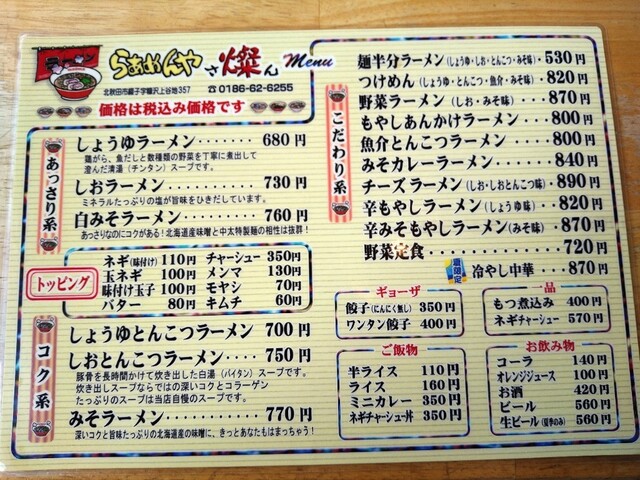 ラーメン
らぁめんや さ燦ん Menu
北秋田市綴子字糠沢上谷地357 ☎0186-62-6255
価格は税込み価格です
あっさり系
しょうゆラーメン・・・・・・・ 680円
鶏がら、魚だしと数種類の野菜を丁寧に煮出して
澄んだ清湯(チンタン)スープです。
しおラーメン・・・・・・・・・ 730円
ミネラルたっぷりの塩が旨味をひきだしています。
白みそラーメン・・・・・・・・ 760円
あっさりなのにコクがある!北海道産味噌と中太特製麺の相性は抜群!
トッピング
ネギ(味付け) 110円 チャーシュー 350円
玉ネギ 100円 メンマ 130円
味付け玉子 100円 モヤシ 70円
バター 80円 キムチ 60円
コク系
しょうゆとんこつラーメン 700円
しおとんこつラーメン・・・・ 750円
豚骨を長時間かけて炊き出した白湯(パイタン)スープです。
炊き出しスープならではの深いコクとコラーゲン
たっぷりのスープは当店自慢のスープです。
みそラーメン・・・・・・・・・ 770円
深いコクと旨味たっぷりの北海道産の味噌に、きっとあなたもはまっちゃう!
こだわり系
麺半分ラーメン(しょうゆ・しお・とんこつ・みそ味)・530円
つけめん(しょうゆ・とんこつ・魚介・みそ味)・820円
野菜ラーメン(しお・みそ味)・・・・870円
もやしあんかけラーメン・・・・800円
魚介とんこつラーメン・・・・・800円
みそカレーラーメン・・・・・・840円
チーズラーメン(しお・しおとんこつ味)・890円
辛もやしラーメン(しょうゆ味)・820円
辛みそもやしラーメン(みそ味)・870円
野菜定食・・・・・・・・・・・720円
夏限定 冷やし中華・・・870円
ギョーザ
餃子(にんにく無し) 350円
ワンタン餃子 400円
一品
もつ煮込み 400円
ネギチャーシュー 570円
ご飯物
半ライス 110円
ライス 160円
ミニカレー 350円
ネギチャーシュー丼 350円
お飲み物
コーラ 140円
オレンジジュース 100円
お酒 420円
ビール 560円
生ビール(夏季のみ) 560円